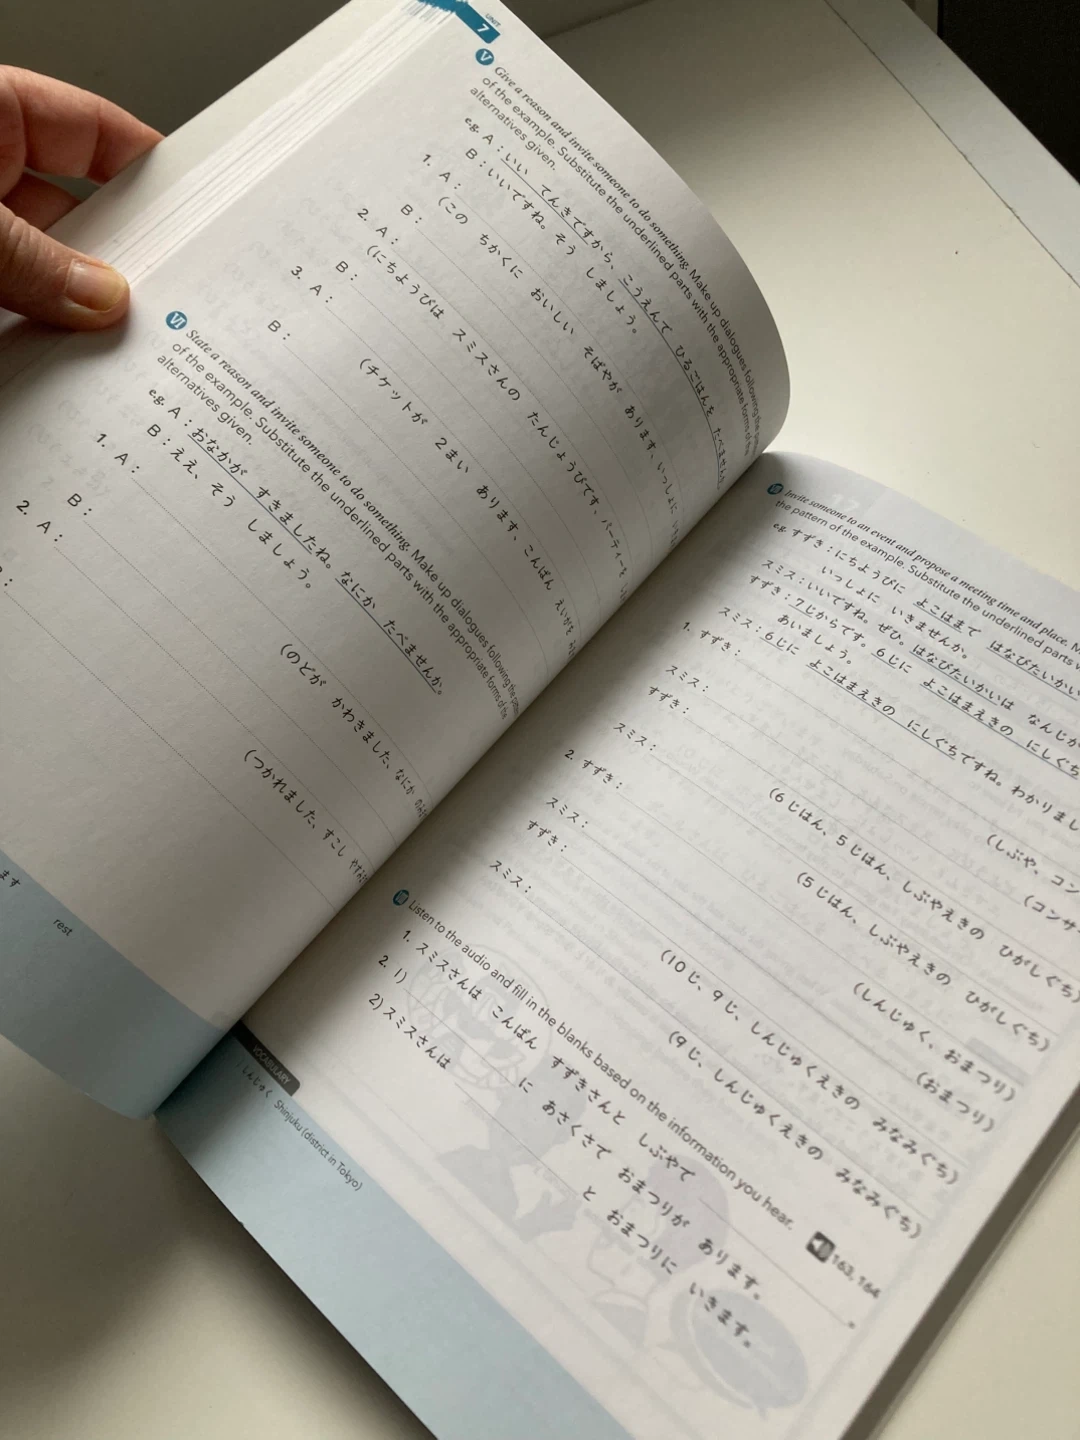 UNIT
7
V Give a reason and invite someone to do something. Make up dialogues following the
of the example. Substitute the underlined parts with the appropriate forms of the
alternatives given.
e.g. A：いい てんきですから、こうえんで ひるごはんを たべません
B：いいですね。そう しましょう。
1. A：
(この ちかくに おいしい そばやが あります、いっしょに
B：
2. A：
(にちようびは スミスさんの たんじょうびです、パーティーを
B：
3. A：
(チケットが 2まい あります、こんばん えいがを
B：
VI State a reason and invite someone to do something. Make up dialogues following the
of the example. Substitute the underlined parts with the appropriate forms of the
alternatives given.
e.g. A：おなかが すきましたね。なにか たべませんか。
B：ええ、そう しましょう。
1. A：
(のどが かわきました、なにか
B：
2. A：
(つかれました、すこし
:
ます
rest
Invite someone to an event and propose a meeting time and place.
the pattern of the example. Substitute the underlined parts
e.g. すずき：にちようびに よこはまで はなびたいかい
いっしょに いきませんか。
スミス：いいですね。ぜひ。はなびたいかいは なんじか
すずき：7じからです。6じに よこはまえきの にしぐち
あいましょう。
スミス：6じに よこはまえきの にしぐちですね。わかりまし
1. すずき：
(しぶや、コン
スミス：
(コンサ
すずき：
(6じはん、5じはん、しぶやえきの ひがしぐち)
スミス：
(5じはん、しぶやえきの ひがしぐち)
2. すずき：
(しんじゅく、おまつり)
スミス：
(おまつり)
すずき：
(10じ、9じ、しんじゅくえきの みなみぐち)
スミス：
(9じ、しんじゅくえきの みなみぐち)
Listen to the audio and fill in the blanks based on the information you hear. 163, 164
1. スミスさんは こんばん すずきさんと しぶやで 。
2. 1) に あさくさで おまつりが あります。
2) スミスさんは と おまつりに いきます。
VOCABULARY
しんじゅく Shinjuku (district in Tokyo)